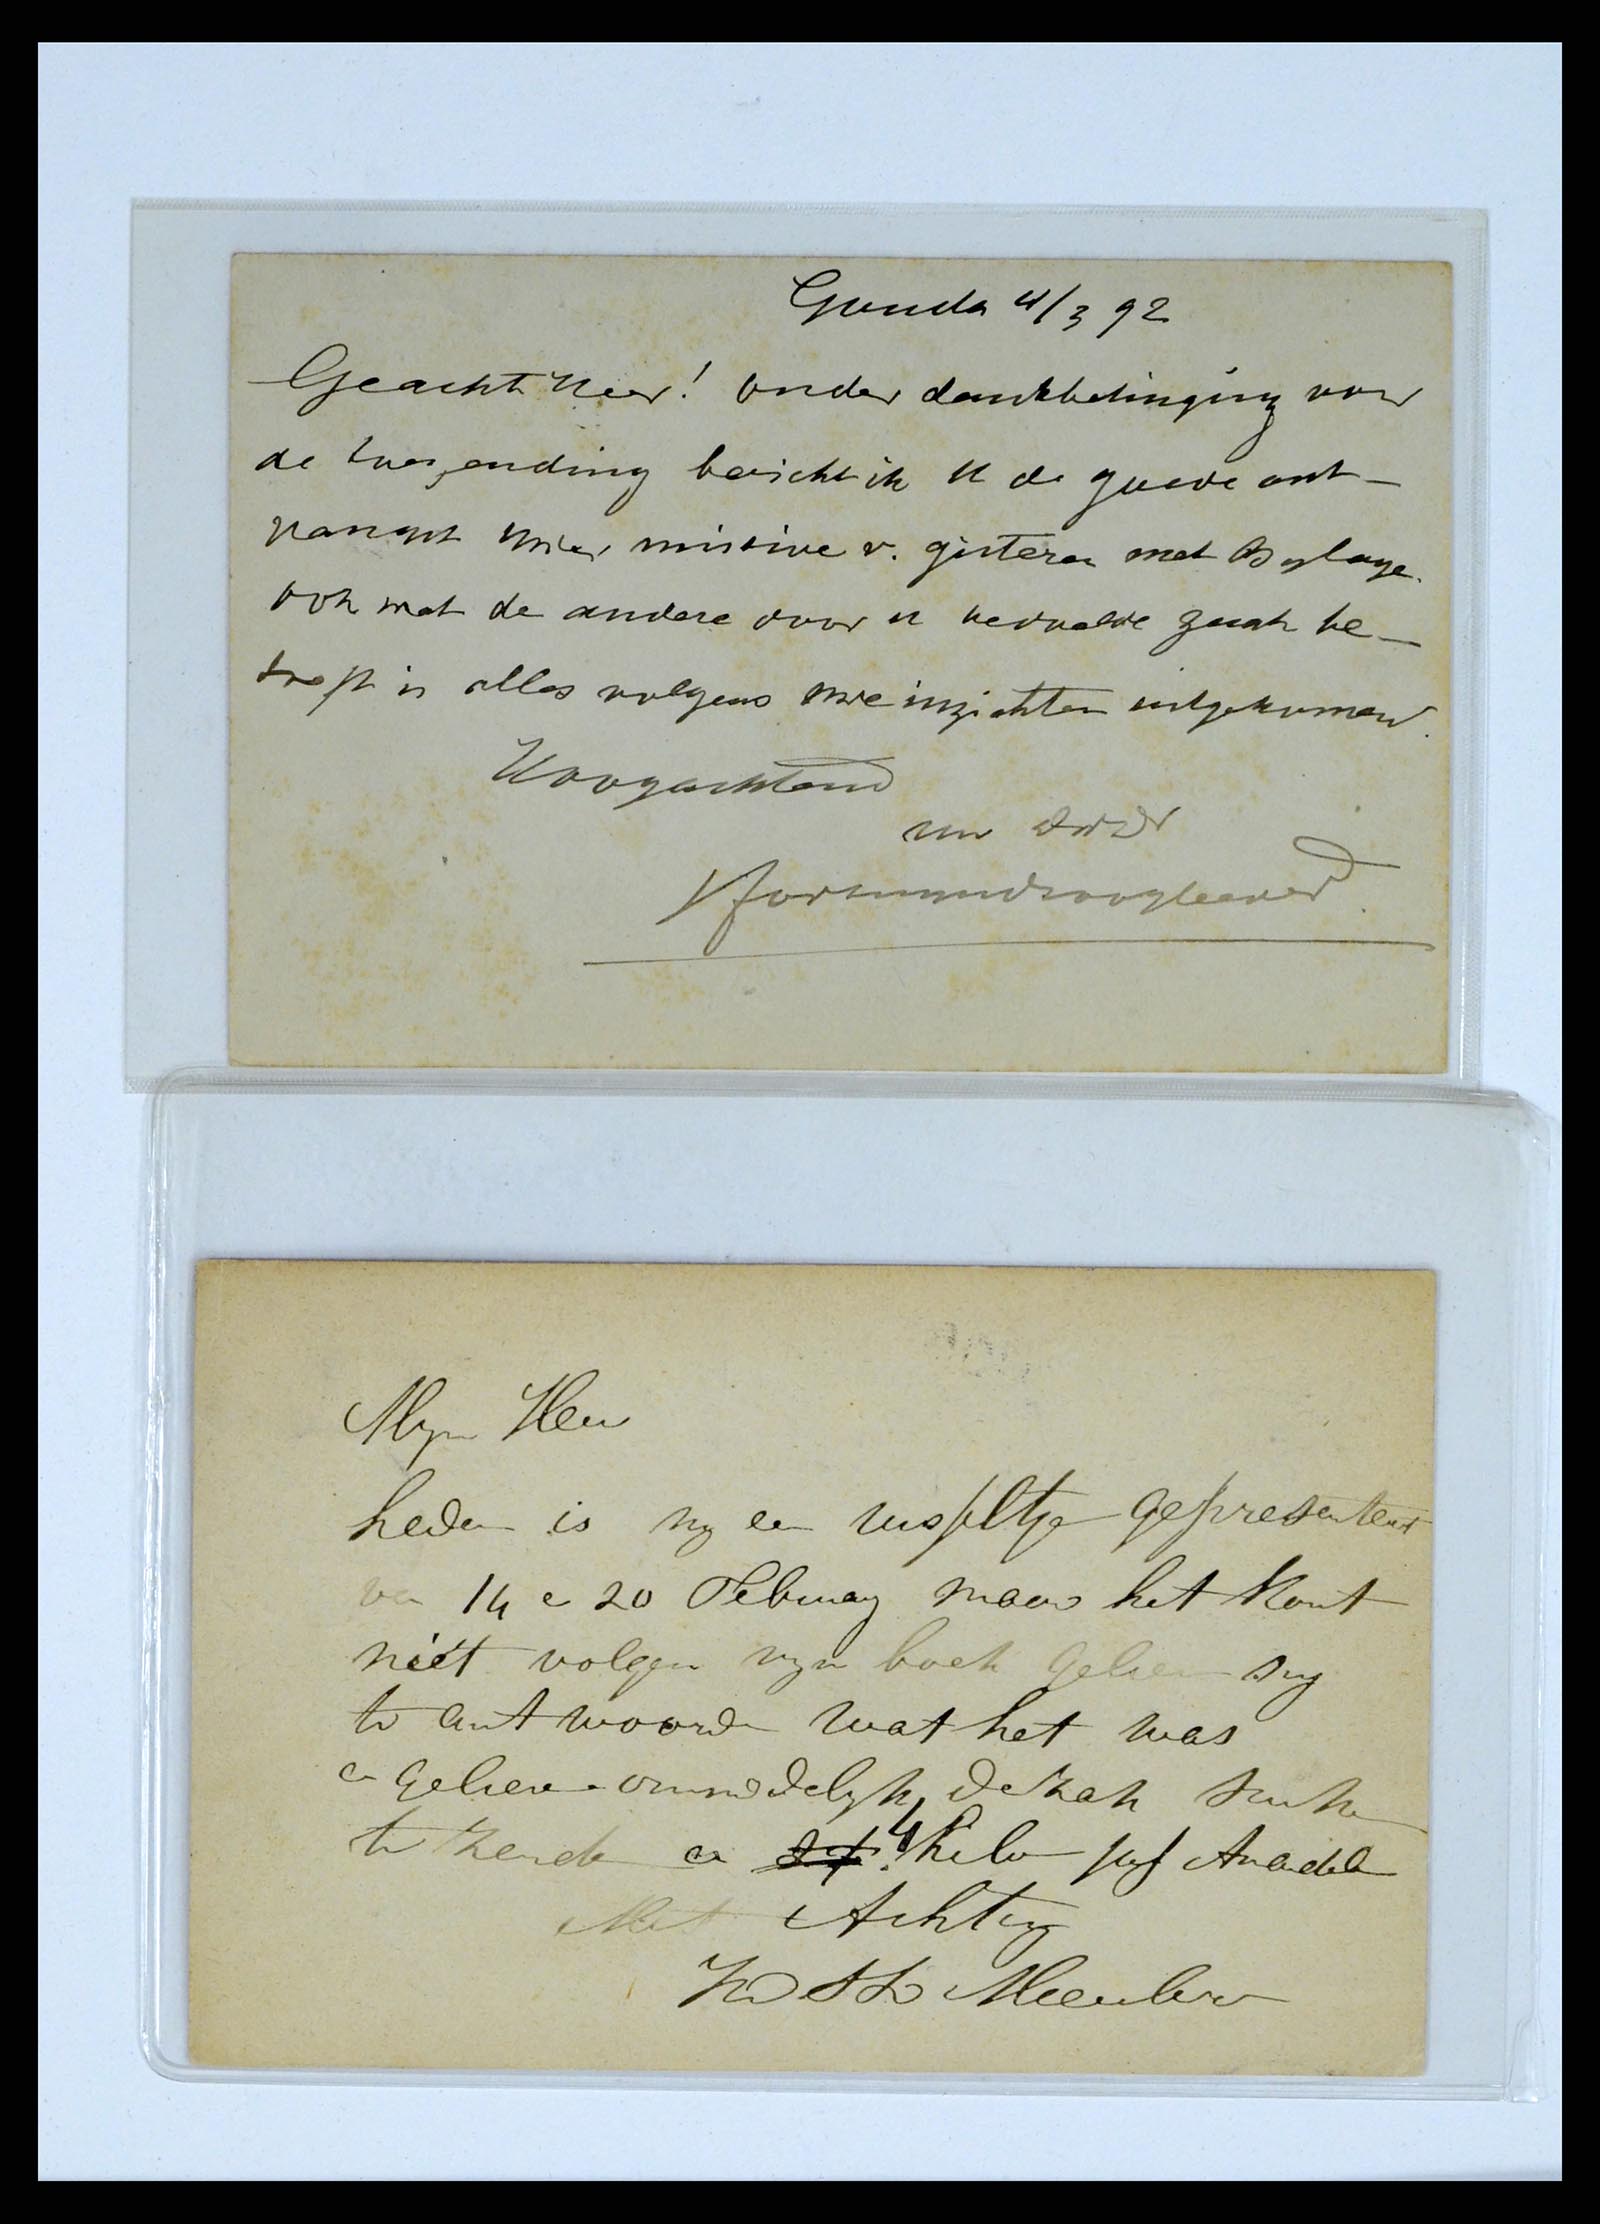 Gouda 4/3 92
Geacht Heer! onder dankbetuiging voor
de toezending bericht ik U de goede ont-
vangst Uwer missive v. gisteren met Bijlage.
ook wat de andere door u bedoelde zaak be-
treft is alles volgens Uwe inzichten uitgekomen.
Hoogachtend
uw dwdr

Mijn Heer
heden is mij een wisseltje gepresenteert
van 14 e 20 Februarij maar het komt
niet volgen mijn boek Gelieve mij
te antwoorde wat het was
en Gelieve onmiddelyk de zak
te zende en 4 kilo
Met Achting